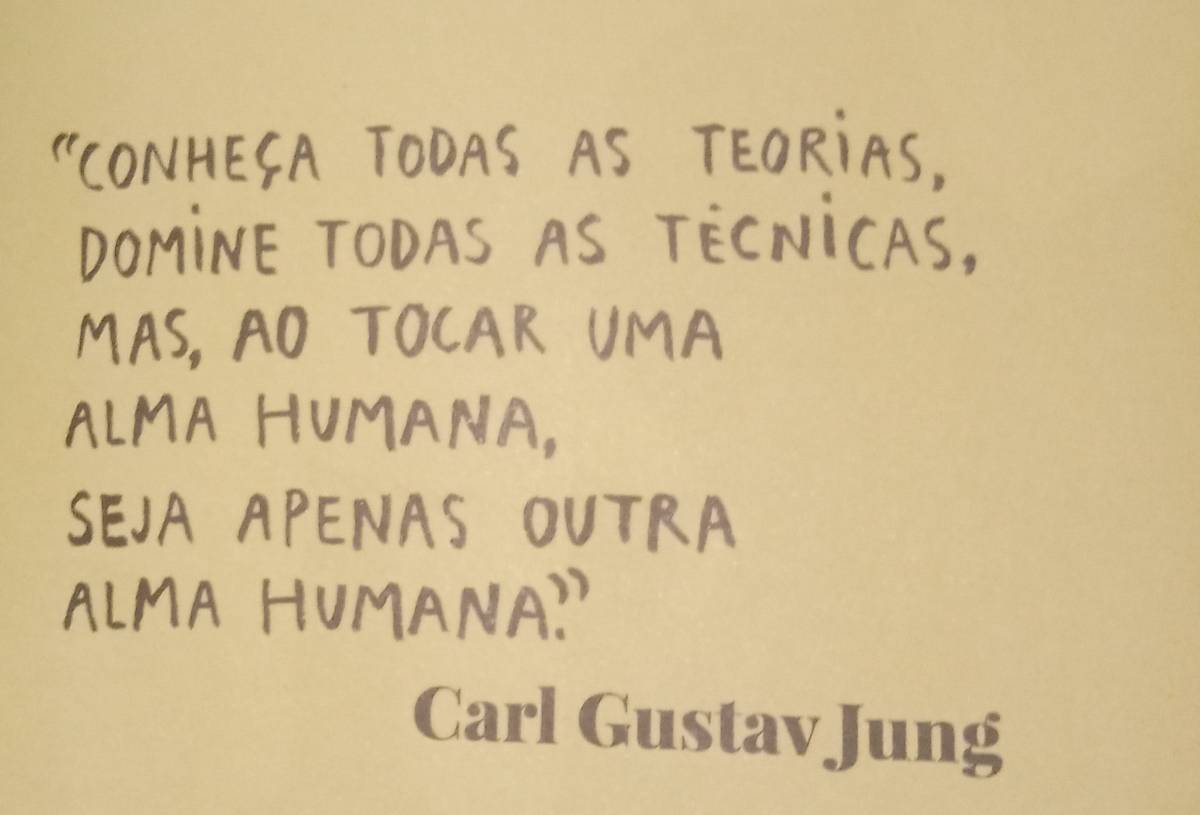 “CONHEÇA TODAS AS TEORIAS,
DOMINE TODAS AS TÉCNICAS,
MAS, AO TOCAR UMA
ALMA HUMANA,
SEJA APENAS OUTRA
ALMA HUMANA.”
Carl Gustav Jung